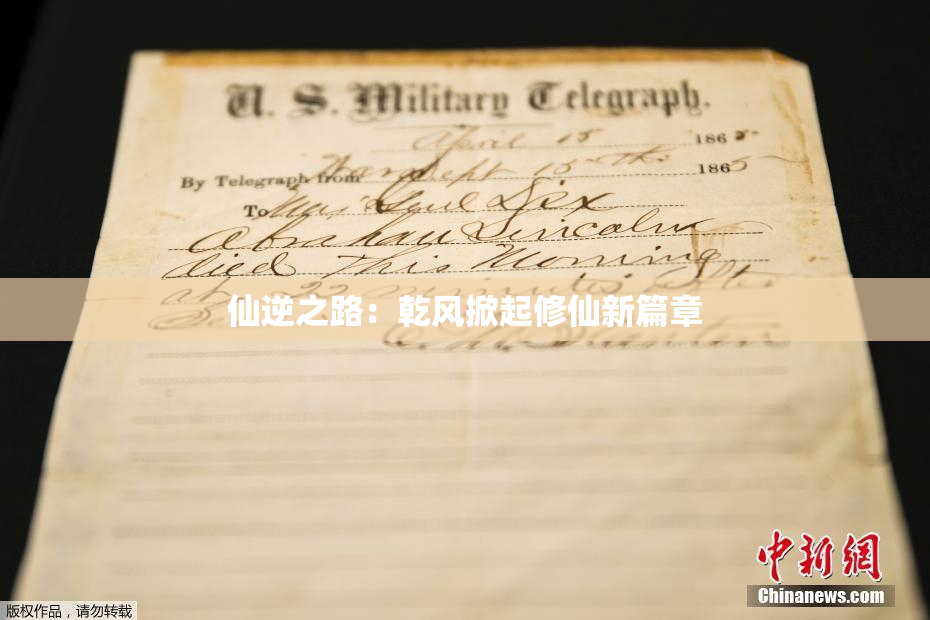 U. S. Military Telegraph.
April 15 1865
By Telegraph from War Dept 15th 1865
To Maj Genl Dix
Abraham Lincoln
died This Morning
at 22 minutes after
仙逆之路：乾风掀起修仙新篇章
Se
E. M. Stanton
中新网
Chinanews.com
版权作品，请勿转载